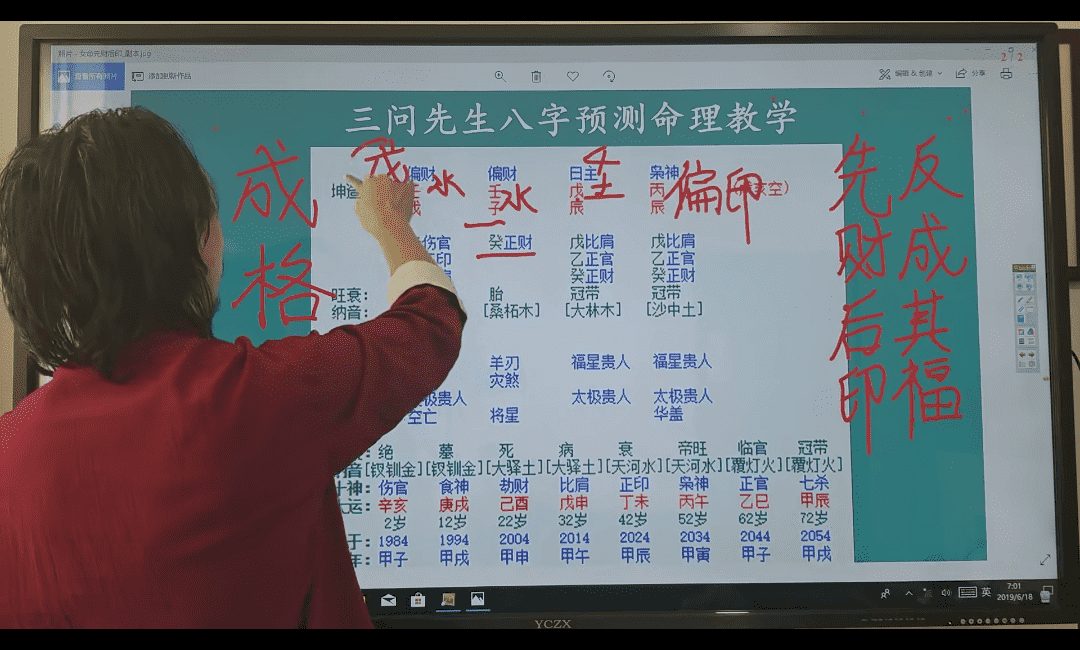 照片 - 女命先财后印_副本.jpg
查看所有照片 添加到新作品 编辑 & 创建 分享
2 / 2
三问先生八字预测命理教学
成格
戊
水
水
土
偏印
先财后印
反成其福
偏财 偏财 日主 枭神
坤造 壬 壬 戊 丙
子 辰 辰 亥空)
伤官 癸正财 戊比肩 戊比肩
正印 乙正官 乙正官
癸正财 癸正财
旺衰: 胎 冠带 冠带
纳音: [桑柘木] [大林木] [沙中土]
羊刃 福星贵人 福星贵人
灾煞
极贵人 太极贵人 太极贵人
空亡 将星 华盖
绝 墓 死 病 衰 帝旺 临官 冠带
音[钗钏金] [钗钏金] [大驿土] [大驿土] [天河水] [天河水] [覆灯火] [覆灯火]
十神: 伤官 食神 劫财 比肩 正印 枭神 正官 七杀
大运: 辛亥 庚戌 己酉 戊申 丁未 丙午 乙巳 甲辰
2岁 12岁 22岁 32岁 42岁 52岁 62岁 72岁
于: 1984 1994 2004 2014 2024 2034 2044 2054
年: 甲子 甲戌 甲申 甲午 甲辰 甲寅 甲子 甲戌
英 7:01
2019/6/18
YCZX